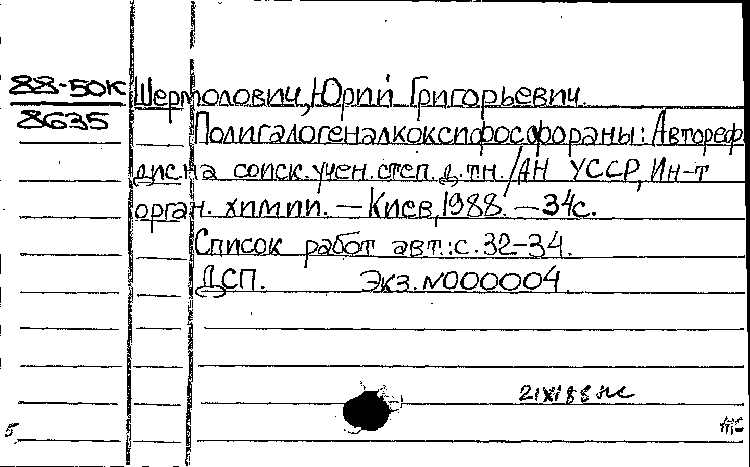 88-50К
8635
Шермолович, Юрий Григорьевич.
Полигалогеналкоксифосфораны: Автореф.
дис. на соиск. учен. степ. д.т.н. / АН УССР, Ин-т
орган. химии. — Киев, 1988. — 34с.
Список работ авт.: с. 32-34.
ДСП. Экз. N000004.
5